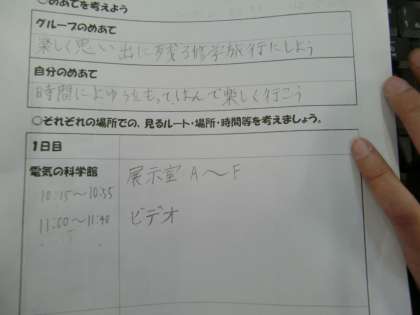 ○めあてを考えよう
グループのめあて
楽しく思い出に残る修学旅行にしよう
自分のめあて
時間によゆうをもってはんで楽しく行こう
○それぞれの場所での、見るルート・場所・時間等を考えましょう。
1日目
電気の科学館 展示室 A～F
10:15～10:55
11:00～11:40 ビデオ